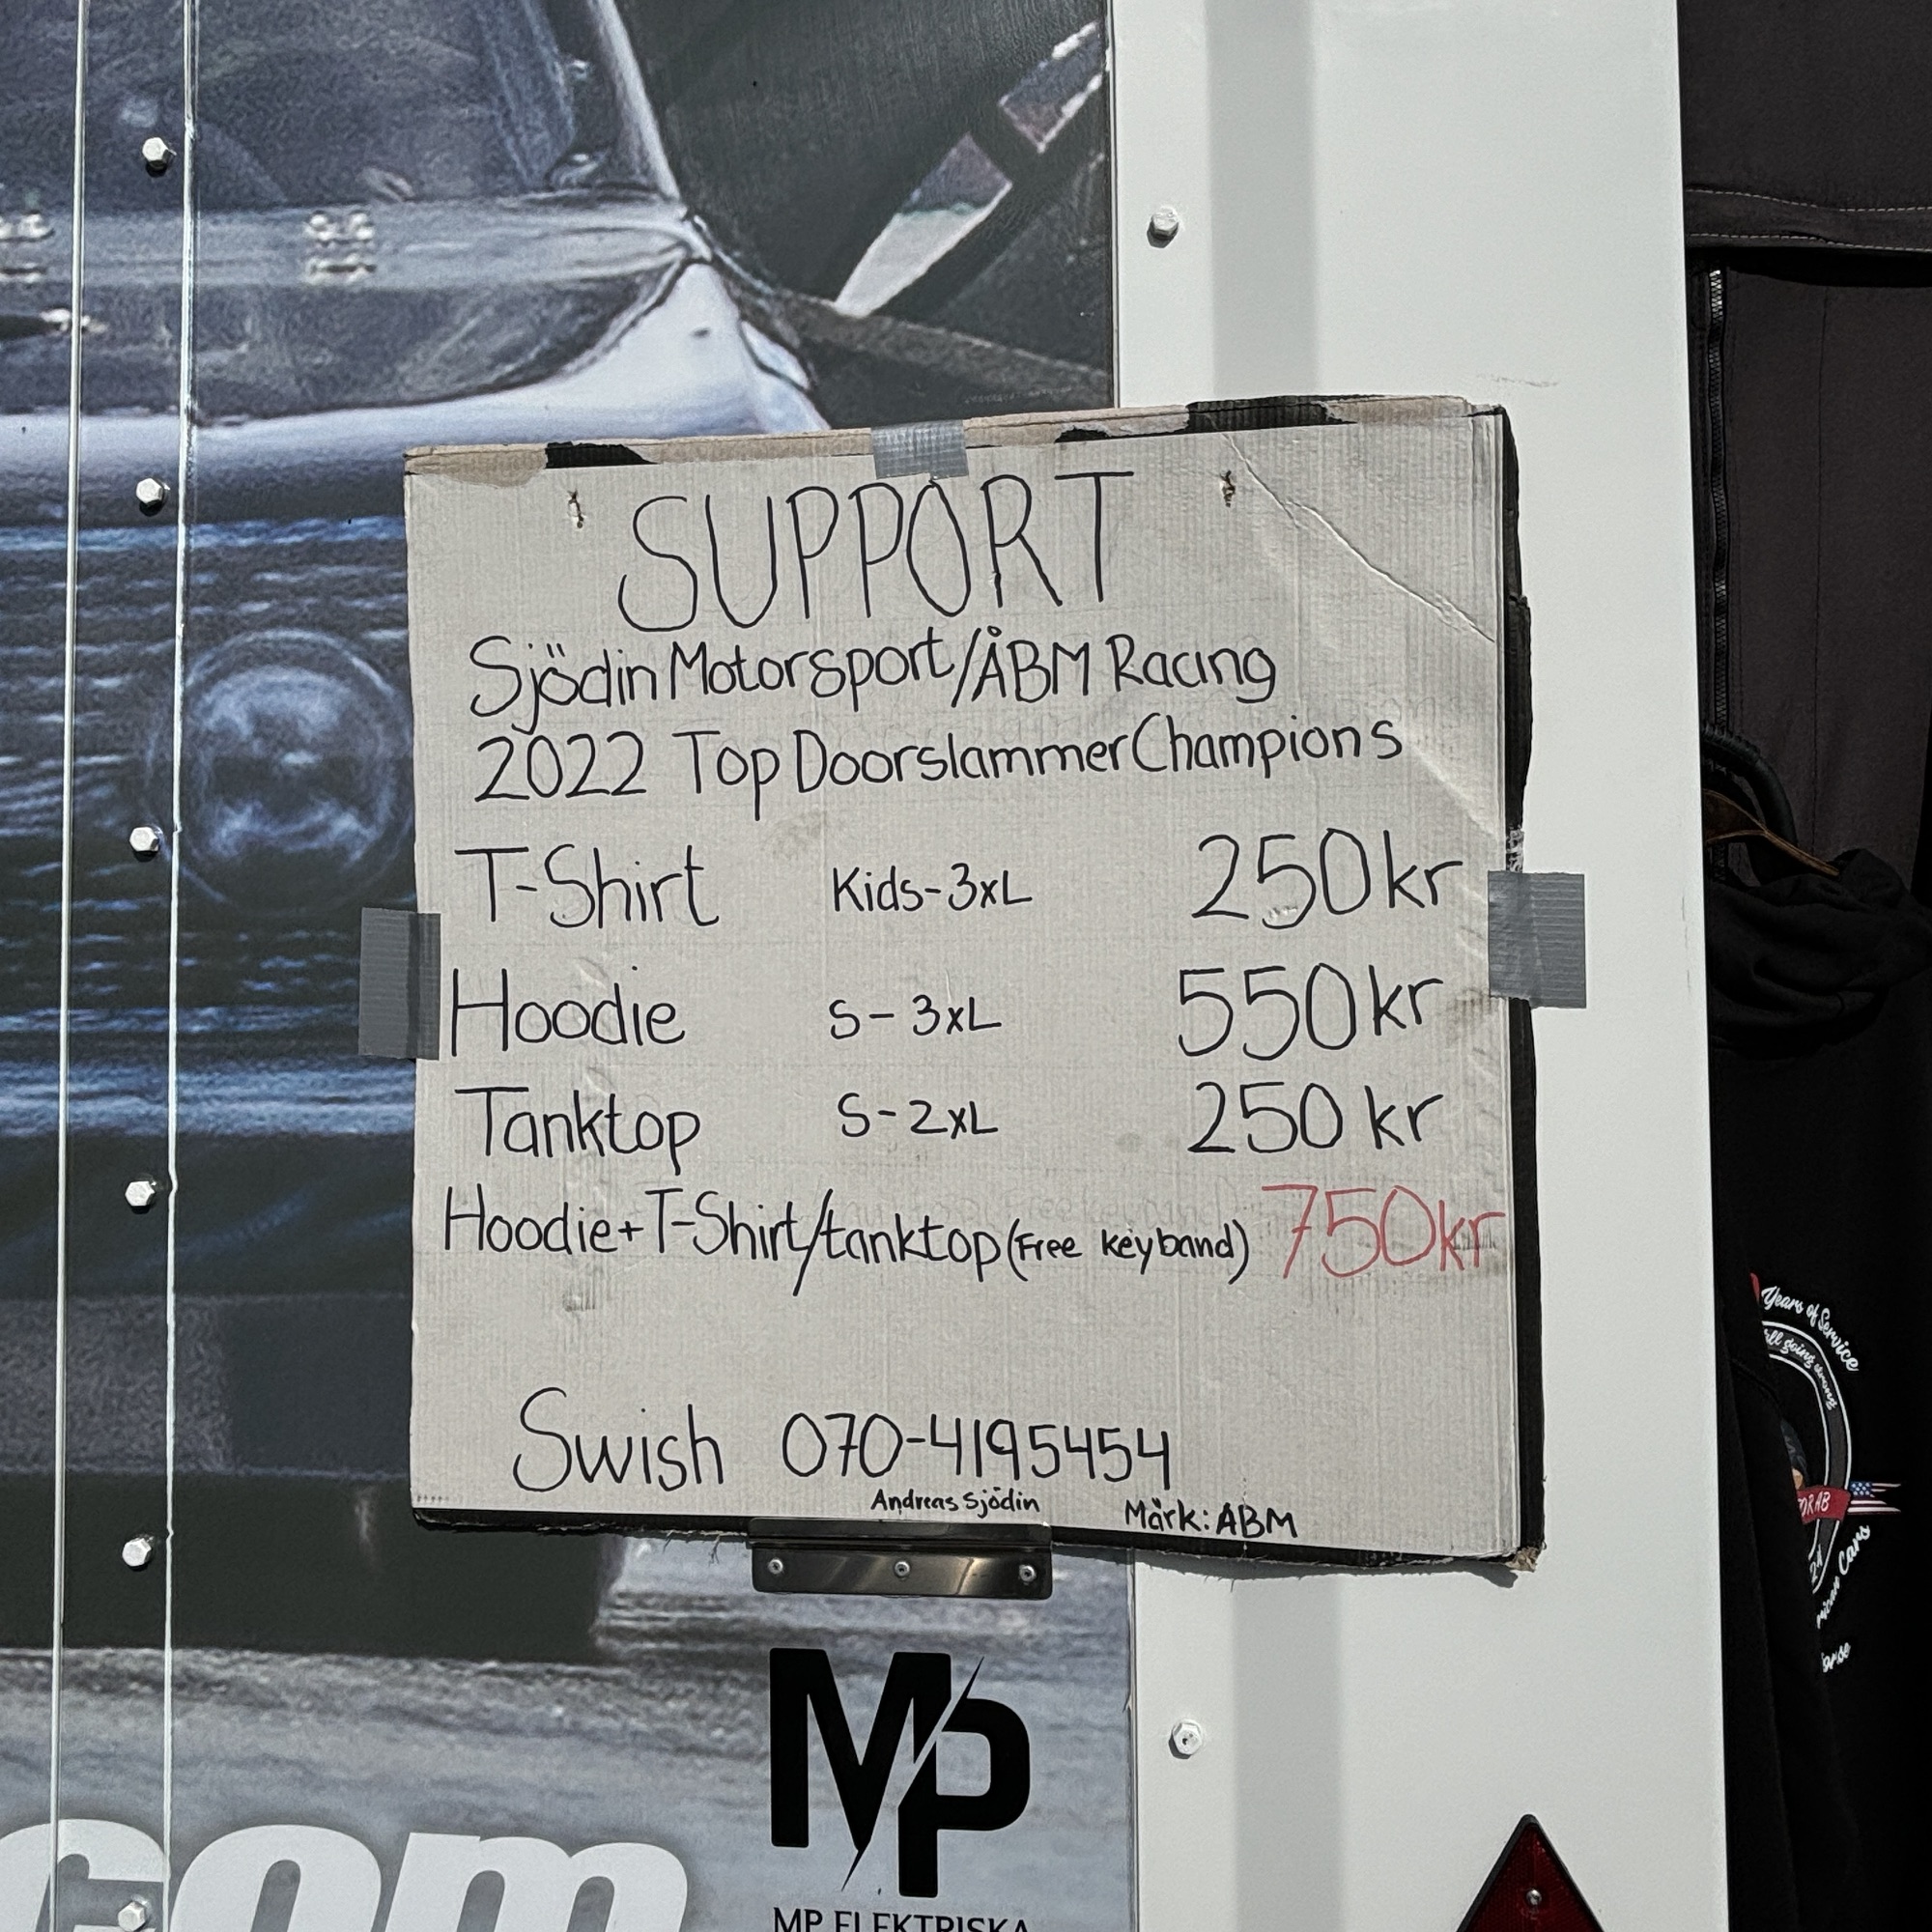 SUPPORT
Sjödin Motorsport/ÅBM Racing
2022 Top Doorslammer Champions
T-Shirt Kids-3xL 250kr
Hoodie S-3xL 550kr
Tanktop S-2xL 250 kr
Hoodie+T-Shirt/tanktop(Free keyband) 750kr
Swish 070-4195454
Andreas Sjödin
Märk: ÅBM
MP
MP ELEKTRISKA
com
Years of Service
still going strong
Cars